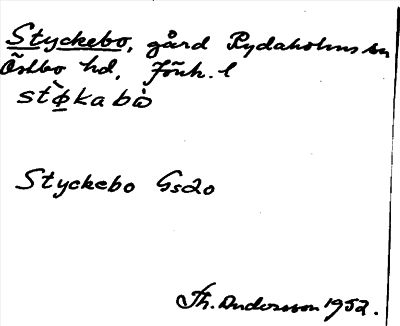 Styckebo, gård Rydaholms sn
Östbo hd, Jönk. l
stø̀kabò
Styckebo Gs20
Th. Andersson 1952.